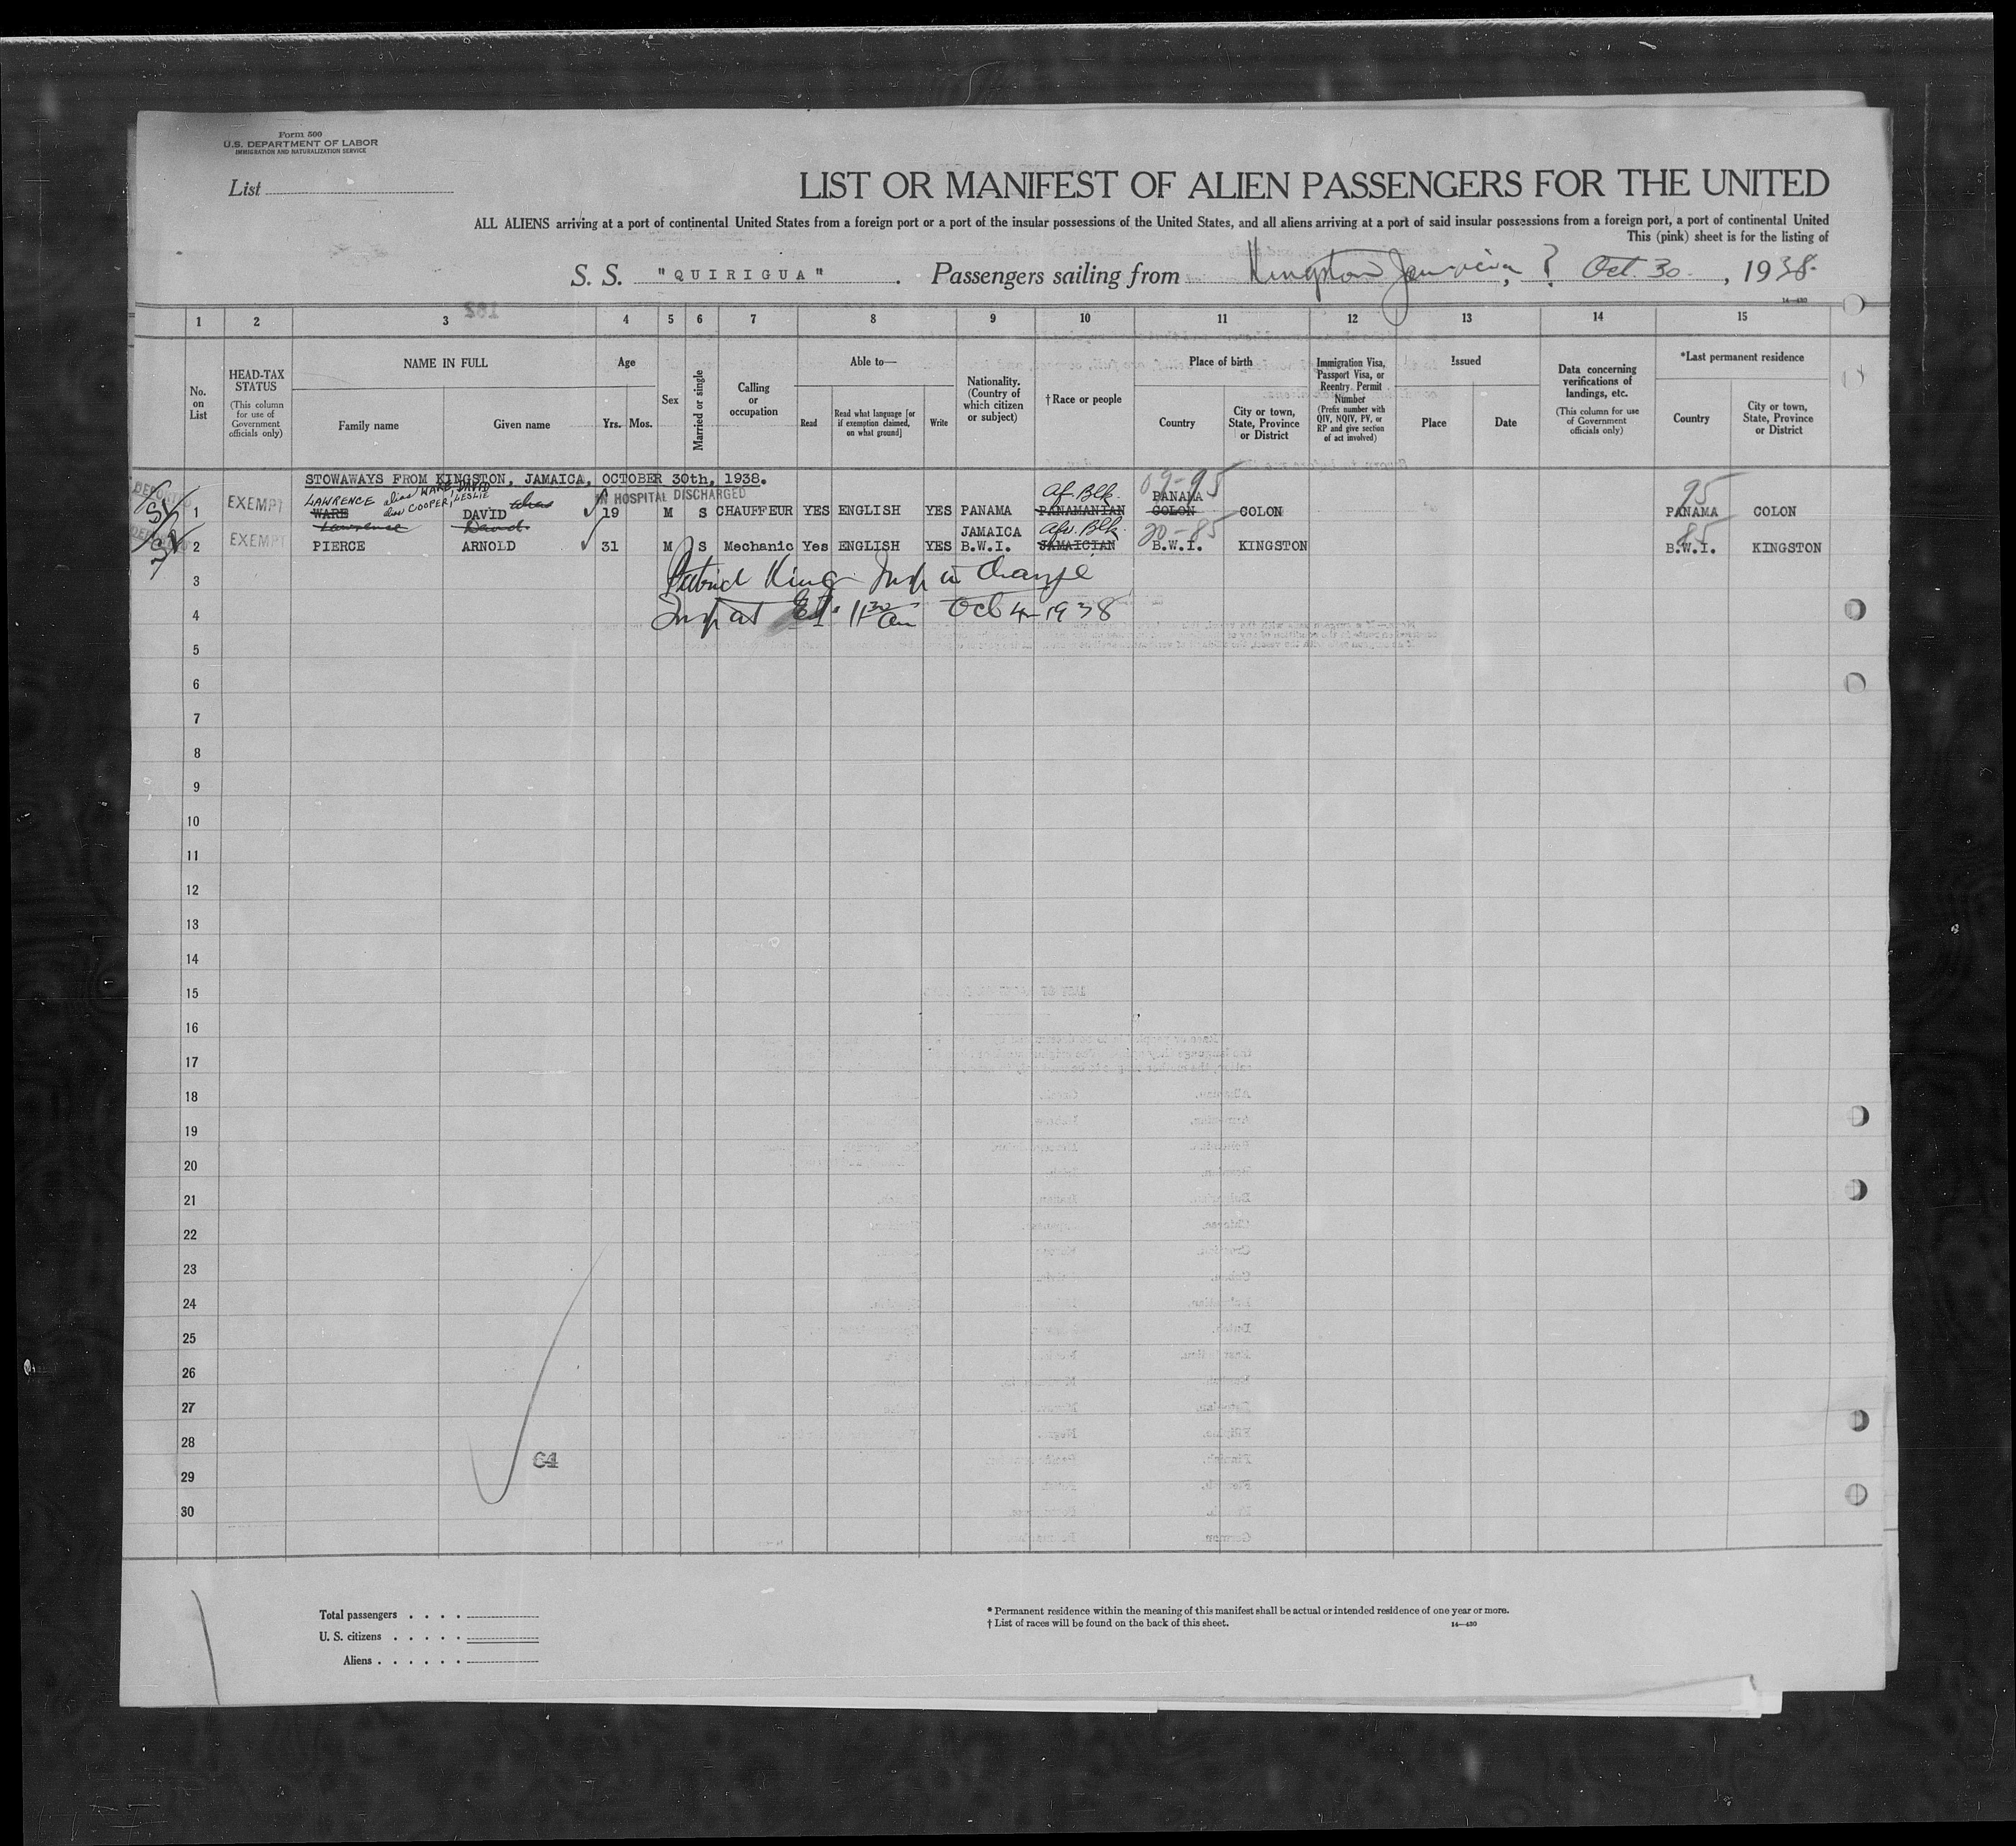 Form 500
U.S. DEPARTMENT OF LABOR
IMMIGRATION AND NATURALIZATION SERVICE
List
LIST OR MANIFEST OF ALIEN PASSENGERS FOR THE UNITED
ALL ALIENS arriving at a port of continental United States from a foreign port or a port of the insular possessions of the United States, and all aliens arriving at a port of said insular possessions from a foreign port, a port of continental United
This (pink) sheet is for the listing of
S. S. "QUIRIGUA". Passengers sailing from Kingston Jamaica, ? Oct. 30., 1938.
14—430
1 2 3 4 5 6 7 8 9 10 11 12 13 14 15
No. on List
HEAD-TAX STATUS
(This column for use of Government officials only)
NAME IN FULL
Family name
Given name
Age
Yrs. Mos.
Sex
Married or single
Calling or occupation
Able to—
Read
Read what language [or if exemption claimed, on what ground]
Write
Nationality. (Country of which citizen or subject)
†Race or people
Place of birth
Country
City or town, State, Province or District
Immigration Visa, Passport Visa, or Reentry Permit Number
(Prefix number with QIV, NQIV, PV, or RP and give section of act involved)
Issued
Place
Date
Data concerning verifications of landings, etc.
(This column for use of Government officials only)
*Last permanent residence
Country
City or town, State, Province or District
STOWAWAYS FROM KINGSTON, JAMAICA, OCTOBER 30th, 1938.
DEPORTED
LAWRENCE alias WARE, DAVID
alias COOPER, LESLIE
IN HOSPITAL DISCHARGED
Af. Blk. 09-95 95
PANAMA
1 EXEMPT WARE DAVID alias 19 M S CHAUFFEUR YES ENGLISH YES PANAMA PANAMANIAN COLON COLON PANAMA COLON
Lawrence David
JAMAICA Afr. Blk. 20-85 85
2 EXEMPT PIERCE ARNOLD 31 M S Mechanic Yes ENGLISH YES B.W.I. JAMAICIAN B.W.I. KINGSTON B.W.I. KINGSTON
3 Patrick King Insp in Charge
4 Insp at 11 30 am 1938
5
6
7
8
9
10
11
12
13
14
15
16
17
18
19
20
21
22
23
24
25
26
27
28
29
30
64
Total passengers
U. S. citizens
Aliens
* Permanent residence within the meaning of this manifest shall be actual or intended residence of one year or more.
† List of races will be found on the back of this sheet.
14—430